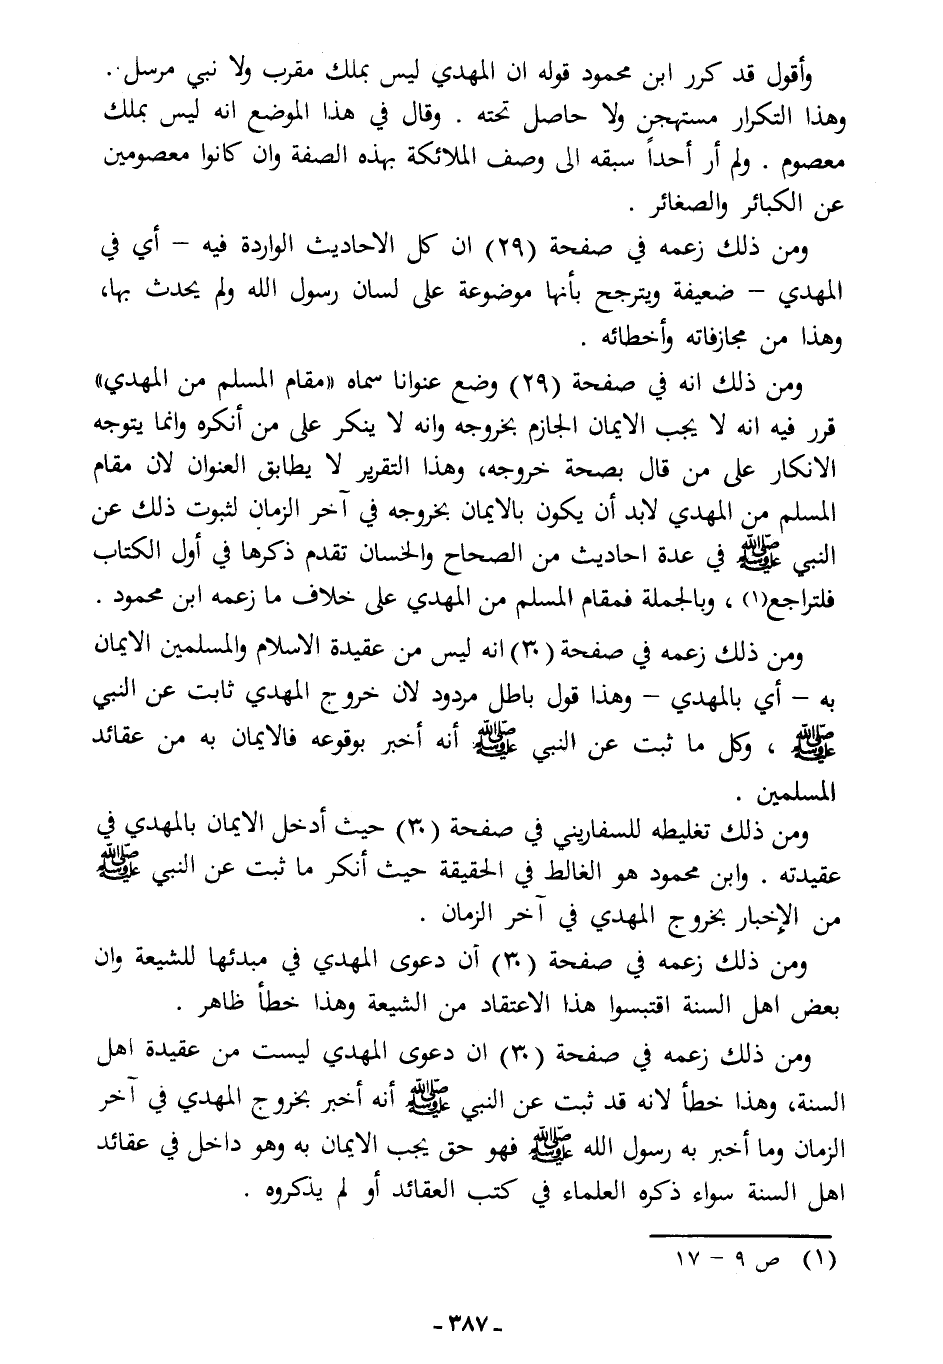 وأقول قد كرر ابن محمود قوله ان المهدي ليس بملك مقرب ولا نبي مرسل.
وهذا التكرار مستهجن ولا حاصل تحته . وقال في هذا الموضع انه ليس بملك
معصوم . ولم أر أحداً سبقه الى وصف الملائكة بهذه الصفة وان كانوا معصومين
عن الكبائر والصغائر .
ومن ذلك زعمه في صفحة (٢٩) ان كل الاحاديث الواردة فيه – أي في
المهدي – ضعيفة ويترجح بأنها موضوعة على لسان رسول الله ولم يحدث بها،
وهذا من مجازفاته وأخطائه .
ومن ذلك انه في صفحة (٢٩) وضع عنوانا سماه «مقام المسلم من المهدي»
قرر فيه انه لا يجب الايمان الجازم بخروجه وانه لا ينكر على من أنكره وانما يتوجه
الانكار على من قال بصحة خروجه، وهذا التقرير لا يطابق العنوان لان مقام
المسلم من المهدي لابد أن يكون بالايمان بخروجه في آخر الزمان لثبوت ذلك عن
النبي ﷺ في عدة احاديث من الصحاح والحسان تقدم ذكرها في أول الكتاب
فلتراجع(١) ، وبالجملة فمقام المسلم من المهدي على خلاف ما زعمه ابن محمود .
ومن ذلك زعمه في صفحة (٣٠) انه ليس من عقيدة الاسلام والمسلمين الايمان
به – أي بالمهدي – وهذا قول باطل مردود لان خروج المهدي ثابت عن النبي
ﷺ ، وكل ما ثبت عن النبي ﷺ أنه أخبر بوقوعه فالايمان به من عقائد
المسلمين .
ومن ذلك تغليطه للسفاريني في صفحة (٣٠) حيث أدخل الايمان بالمهدي في
عقيدته . وابن محمود هو الغالط في الحقيقة حيث أنكر ما ثبت عن النبي ﷺ
من الإخبار بخروج المهدي في آخر الزمان .
ومن ذلك زعمه في صفحة (٣٠) أن دعوى المهدي في مبدئها للشيعة وان
بعض اهل السنة اقتبسوا هذا الاعتقاد من الشيعة وهذا خطأ ظاهر .
ومن ذلك زعمه في صفحة (٣٠) ان دعوى المهدي ليست من عقيدة اهل
السنة، وهذا خطأ لانه قد ثبت عن النبي ﷺ أنه أخبر بخروج المهدي في آخر
الزمان وما أخبر به رسول الله ﷺ فهو حق يجب الايمان به وهو داخل في عقائد
اهل السنة سواء ذكره العلماء في كتب العقائد أو لم يذكروه .
(١) ص ٩ – ١٧
ـ ٣٨٧ ـ